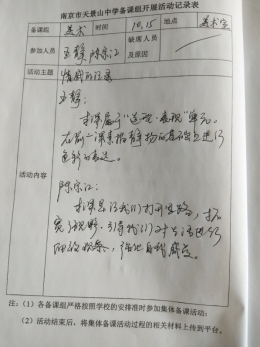 南京市天景山中学备课组开展活动记录表
备课组 美术 时间 10.15 地点 美术室
参加人员 缺席人员及原因
活动主题 情感的记录
活动内容
本课属于"造型·表现"单元。
在前一课素描静物的基础上进行
色彩的表达。
本课是让我们打开思路,拓
宽视野,引导我们对生活进行
细致观察,
注:(1)各备课组严格按照学校的安排准时参加集体备课活动;
(2)活动结束后,将集体备课活动过程的相关材料上传到平台。